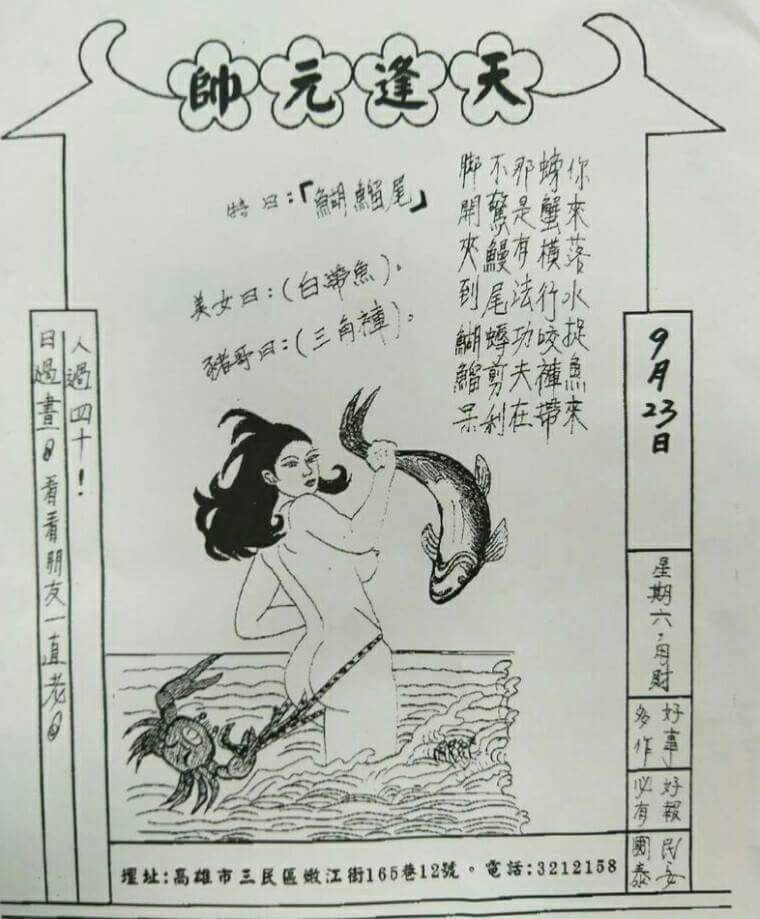 天逢元帥
你來落水捉魚來
螃蟹橫行咬褲帶
那是有法功夫在
不驚鰻尾蟳剪利
脚開夾到鰗鰡呆
特曰:「鰗鰡尾」
美女曰:(白帶魚)。
豬哥曰:(三角褲)。
9月23日
星期六,用財
好事
多作
好報
必有
民安
國泰
人過四十!
日過晝。看看朋友一直老。
壇址:高雄市三民區嫩江街165巷12號。電話:3212158